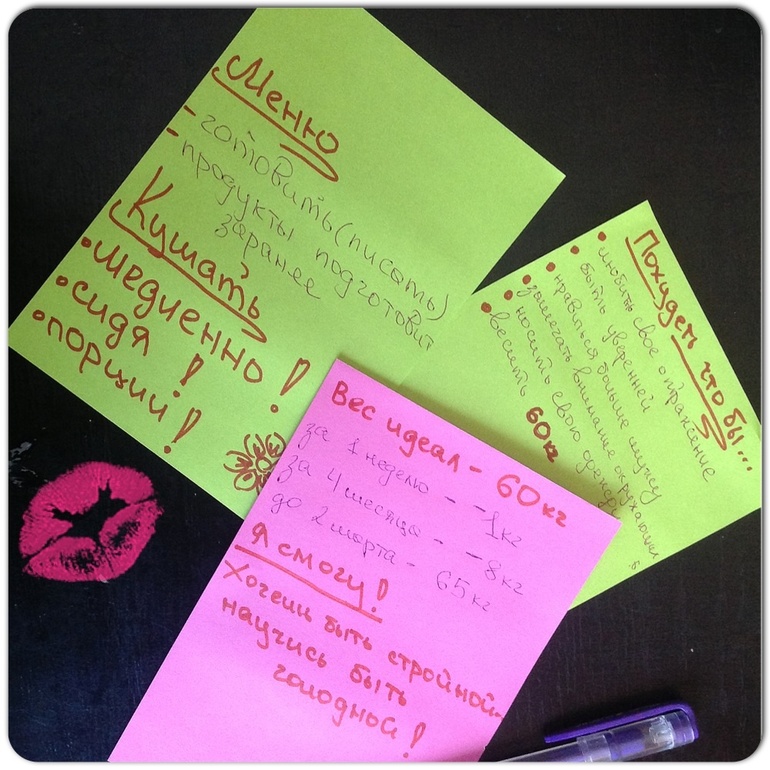 Меню
- готовить (писать)
- продукты подготовит
заранее
Кушать
• медленно!
• сидя!
• порции!
Похудеть что бы...
• любить свое отражение
• быть уверенней
• нравиться больше мужу
• замечать внимание окружающих
• носить свою одежду
• весить 60кг
Вес идеал - 60кг
за 1 неделю - -1кг
за 4 месяца - -8кг
до 2 марта - 65кг
Я смогу!
Хочешь быть стройной -
научись быть
голодной!